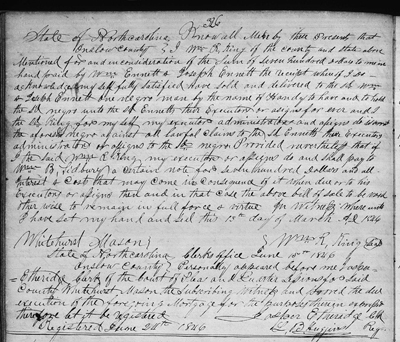 26
State of North carolina } Know all Men by these Presents that
Onslow County } I Wm R. King of the county and state above
Mentioned for and in consideration of the Sum of Seven hundred dollars to me in
hand paid by Ennett & Joseph Ennett the receipt whereof I do
acknowledge my self fully Satisfied have sold and delivered to the sd
& Joseph Ennett one negro man by the name of Handy to have and to hold
the sd negro unto the sd Ennett their Executors or assigns for ever and I
the sd King for my self my executors administrators and assigns do warrant
the aforesd negro against all lawful claims to the sd Ennett their Executors
administrators or assigns to the sd negro Provided nevertheless that if
I the said King my executors or assigns do and shall pay to
B. a certain note for Seven hundred dollars and all
interest & Cost that may come in consequence of it when due or to his
executors or assigns then and in that case the above bill of sale to be void
other wise to remain in full force & virtue In Witness Whereof
I have set my hand and seal this 13th day of March AD 1846
Whitehurst Mason } Wm R. King Seal
State of North carolina } Clerks office June 1846
Onslow County } Personally appeared before me
Etheridge Clerk of the Court of Pleas and Quarter Sessions for said
County Whitehurst Mason the Subscribing Witness and proved the due
execution of the foregoing Mortgage for the purposes therein
therefore let it be registered Etheridge Clk
Registered June 24th 1846 Huggins Regr